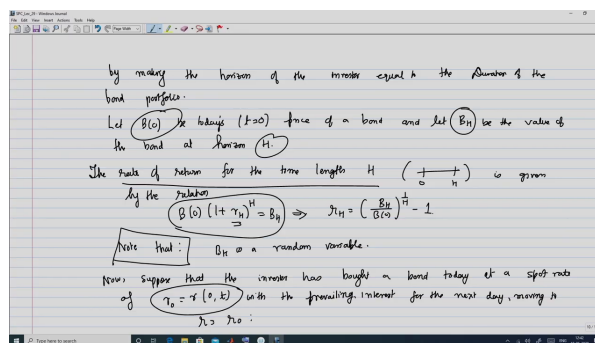 SPC_Lec_29 - Windows Journal
File Edit View Insert Actions Tools Help
Page Width
by making the horizon of the investor equal to the Duration of the
bond portfolio.
Let B(0) be today's (t=0) price of a bond and let B_H be the value of
the bond at horizon H.
The rate of return for the time length H ( 0 H ) is given
by the relation
B(0) (1 + r_H)^H = B_H ⇒ r_H = (B_H / B(0))^{1/H} - 1
Note that : B_H is a random variable.
Now, suppose that the investor has bought a bond today at a spot rate
of r_0 = r(0, t) with the prevailing interest for the next day, moving to
r > r_0 :
Type here to search
ENG